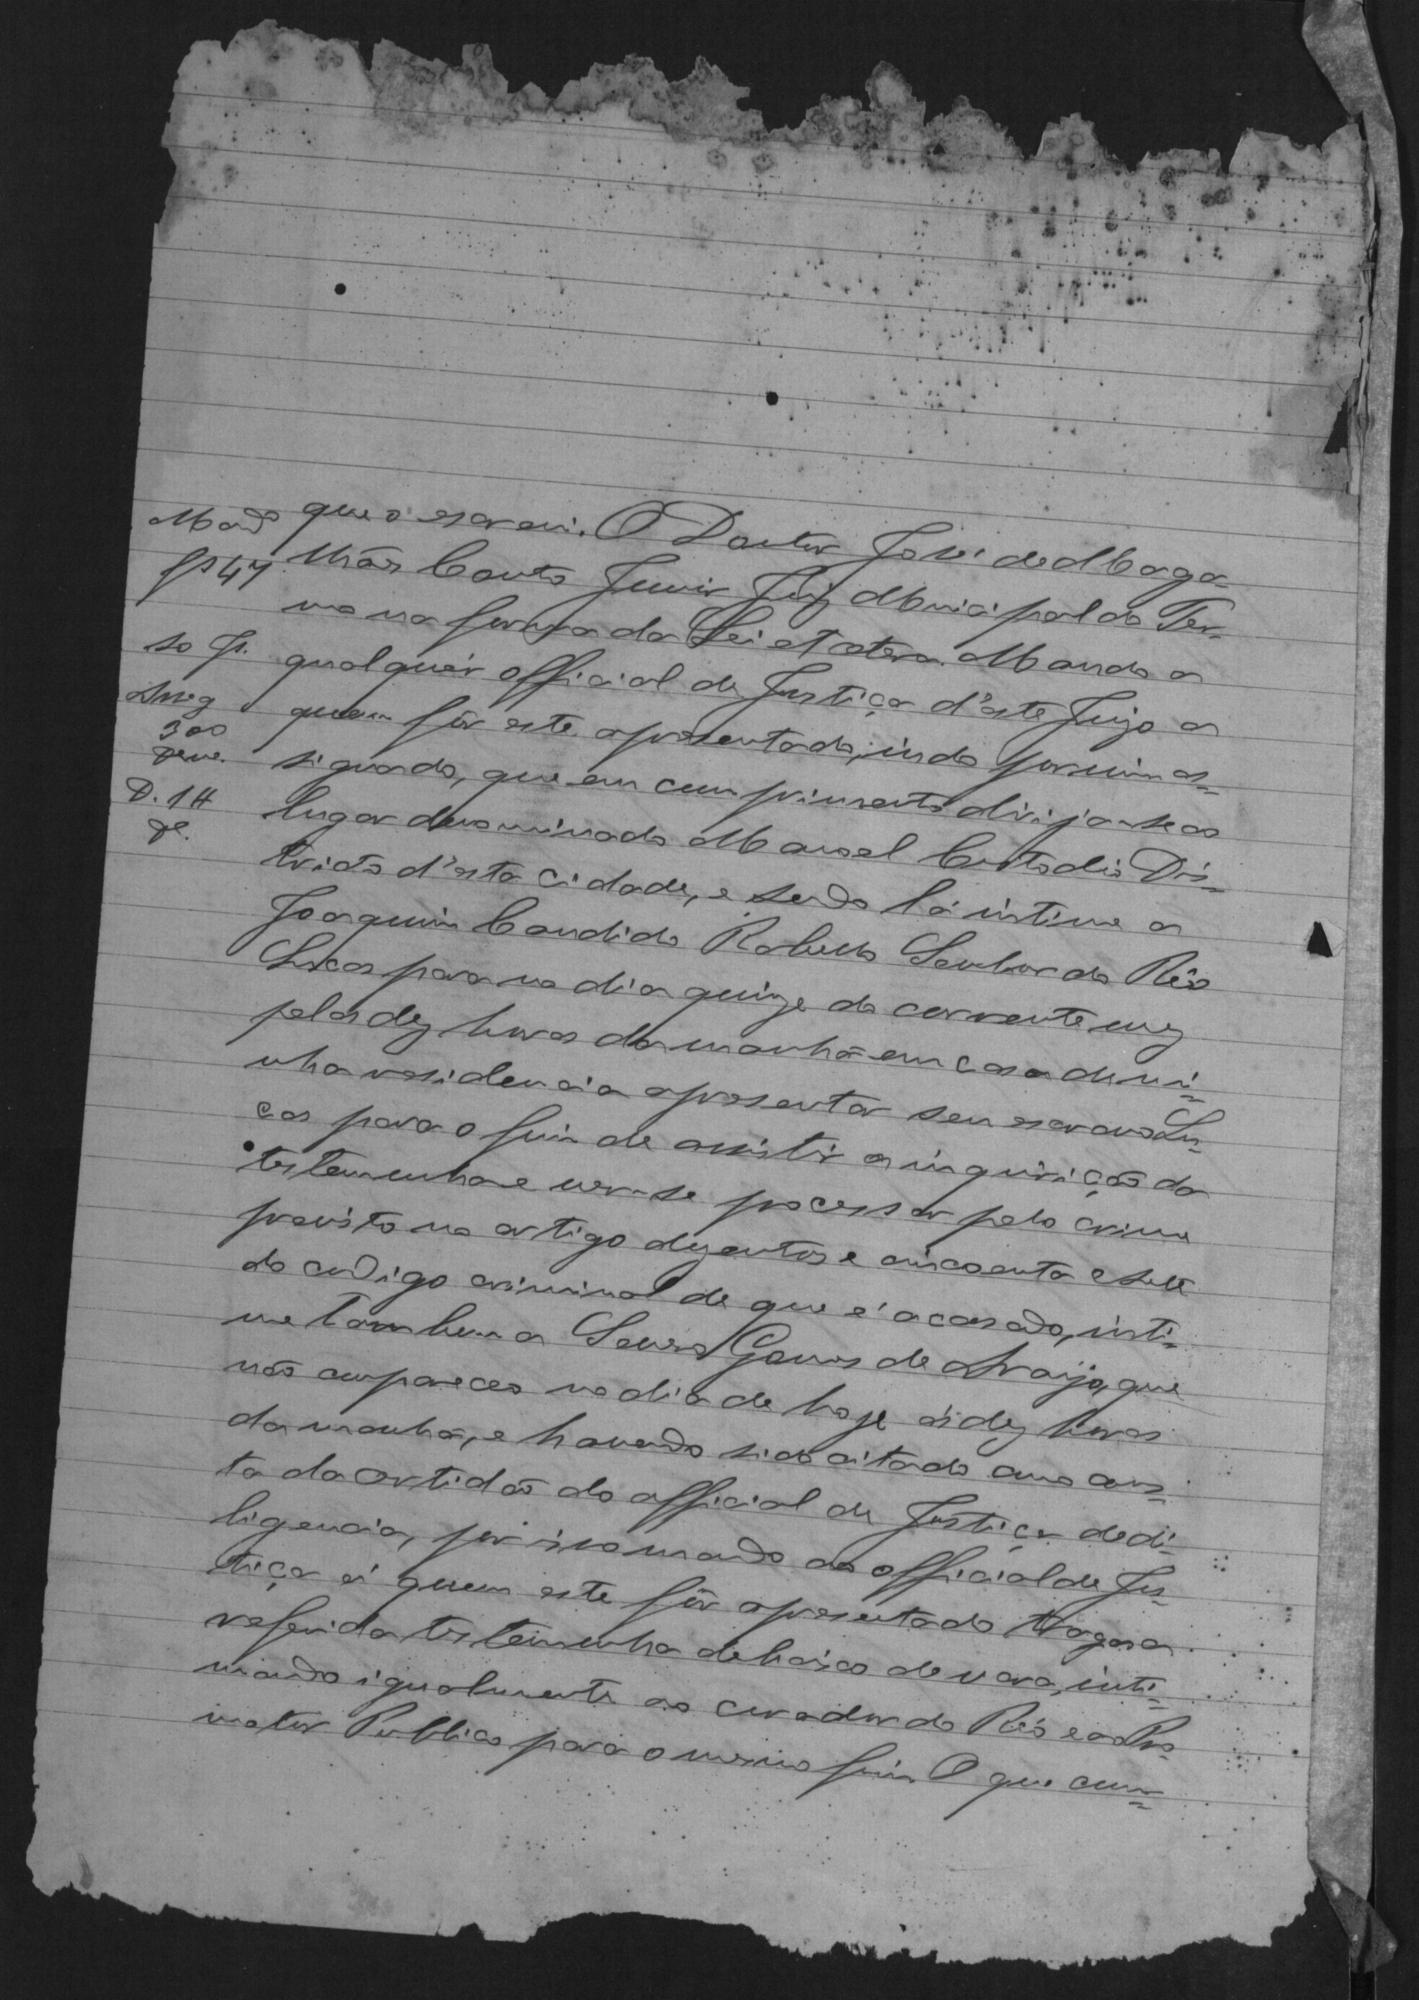 Mando que o escrevi. O Doutor José de Maga-
fl 47 lhães Couto Junior Juiz Municipal do Ter-
mo na forma da Lei et cetera. Mando a
qualquér official de Justiça d'este Juizo a
quem fôr este apresentado, indo por mim as-
300
signado, que em cumprimento dirija-se ao
D. 1#
lugar denominado Manoel Custodio Dis-
tricto d'esta cidade, e sendo lá intime a
Joaquim Candido Rabello Senhor do Réo
Lucas para no dia quinze do corrente mez
pelas dez horas da manhã em casa de mi-
nha residencia apresentar seu escravo Lu-
cas para o fim de assistir a inquirição da
testemunha e ver-se processar pelo crime
previsto no artigo dezentos e cincoenta e sete
do codigo criminal de que é acusado, inti-
me tambem a Gomes de Araujo, que
não compareceo no dia de hoje ás dez horas
da manhã, e havendo sido citado como cons-
ta da certidão do official de Justiça de di-
ligencia, por isso mando ao official de Jus-
tiça á quem este fôr apresentado traga a
referida testemunha debaixo de vara, inti-
mando igualmente ao curador do Réo e ao Pro-
motor Publico para o mesmo fim. O que cum-